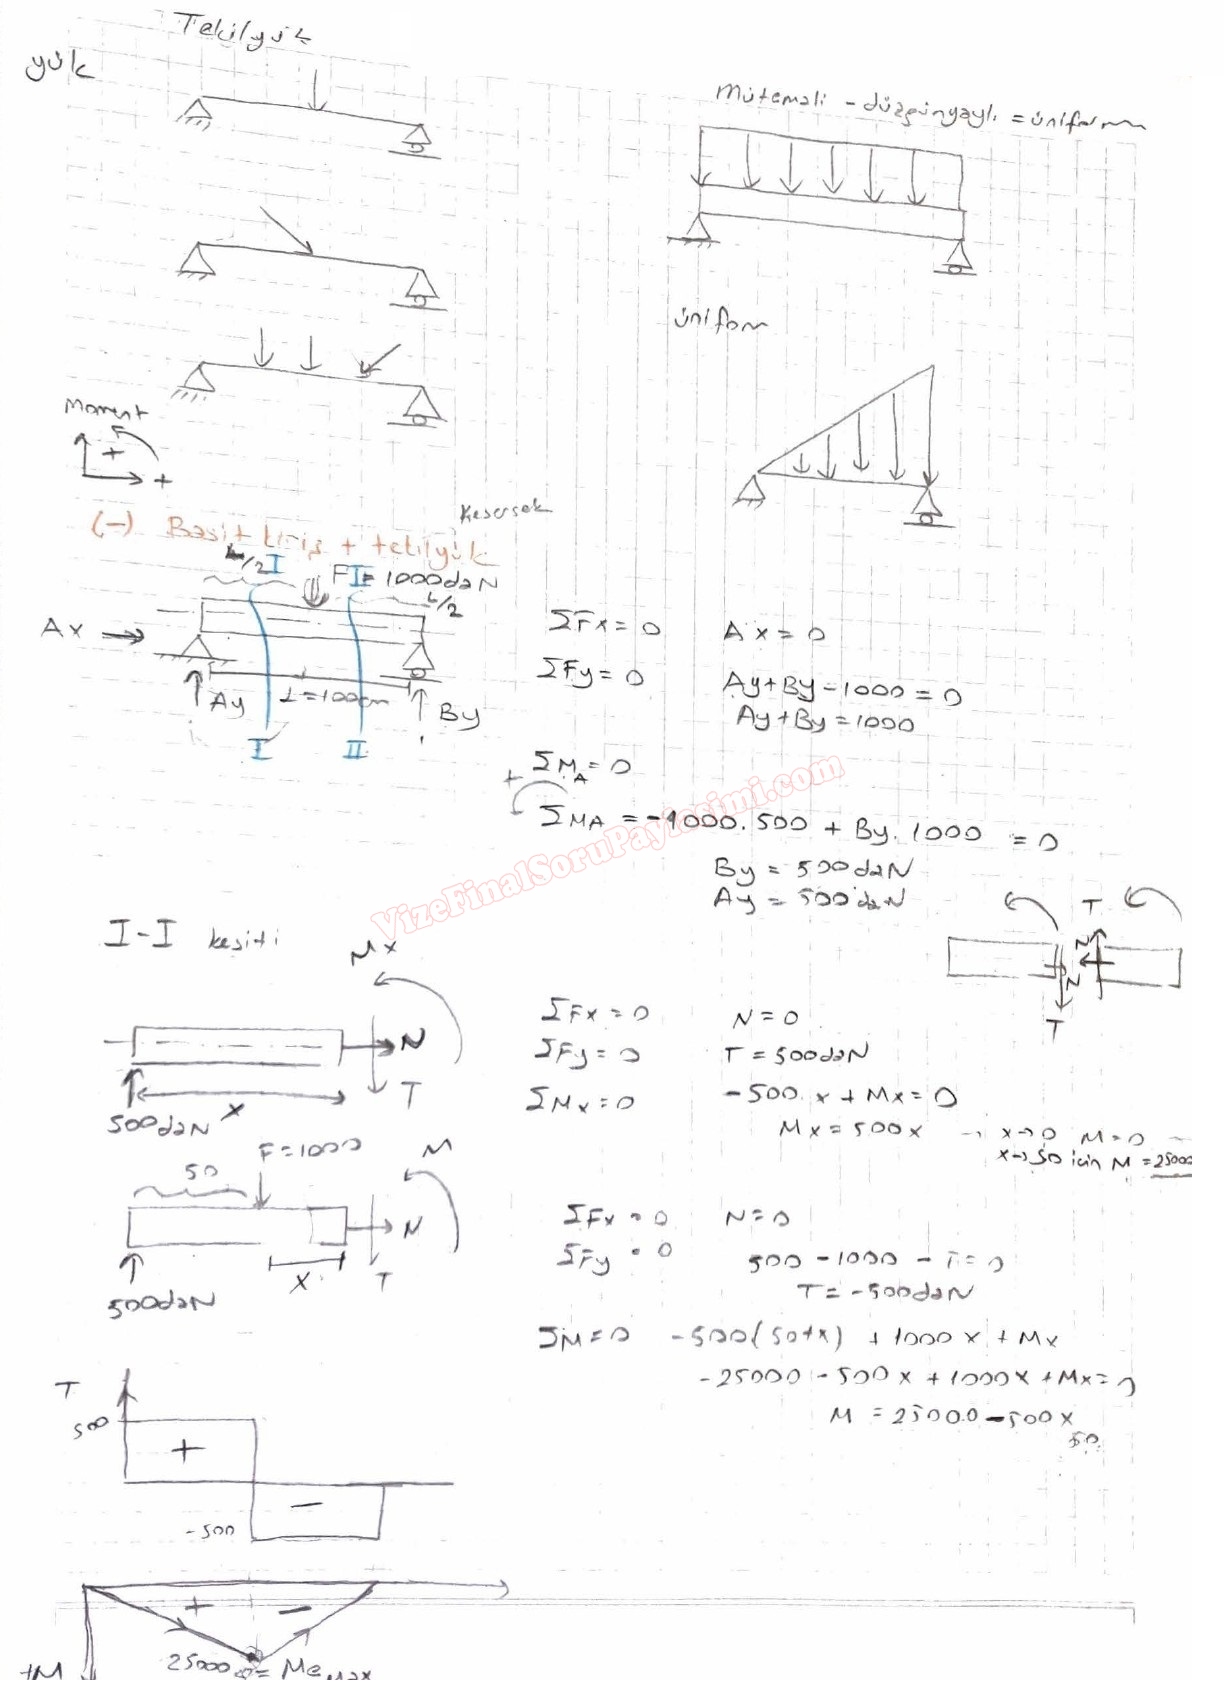 Tekilyük
yük
Mütemadi - düzgünyaylı = üniform
üniform
Moment
+
+
Kesersek
(-) Basit kiriş + tekilyük
L/2
I
II
F = 1000daN
L/2
Ax
L = 100cm
Ay
By
I
II
ΣFx = 0 Ax = 0
ΣFy = 0 Ay + By - 1000 = 0
Ay + By = 1000
ΣMA = 0
+
ΣMA = -1000.500 + By.1000 = 0
By = 500daN
Ay = 500daN
VizeFinalSoruPaylasimi.com
T
N
N
T
I-I kesiti
Mx
N
T
x
500daN
ΣFx = 0 N = 0
ΣFy = 0 T = 500daN
ΣMx = 0 -500.x + Mx = 0
Mx = 500x → x→0 M=0
x→50 için M = 25000
F = 1000
50
M
N
T
x
500daN
ΣFx = 0 N = 0
ΣFy = 0 500 - 1000 - T = 0
T = -500daN
ΣM = 0 -500(50+x) + 1000x + Mx
-25000 - 500x + 1000x + Mx = 0
M = 25000 - 500x
50
T
500
+
-
-500
+
-
25000
= Me max
+M